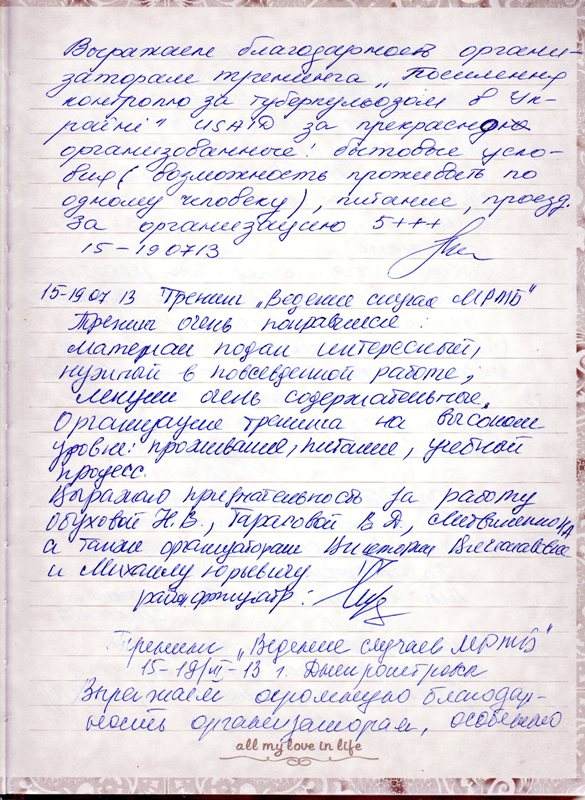 Выражаем благодарность органи-
заторам тренинга „Посилення
контролю за туберкульозом в Ук-
райні" USAID за прекрасно
организованные: бытовые усло-
вия (возможность проживать по
одному человеку), питание, проезд.
За организацию 5+++
15-190713
15-19 07 13 Тренинг „Ведение случая МРТБ"
Тренинг очень понравился:
материал подан интересный,
нужный в повседневной работе,
лекции очень содержательные.
Организация тренинга на высоком
уровне: проживание, питание, учебный
процесс.
Выражаю признательность за работу
Обуховой Н.В., Тарасовой В Д.,
а также организаторам Вячеславовне
и Михаилу Юрьевичу
райфтизиатр:
Тренинг „Ведение случаев МРТБ"
15-19/VII-13 г. Днепропетровск
Выражаем огромную благодар-
ность организаторам, особенно
all my love in life